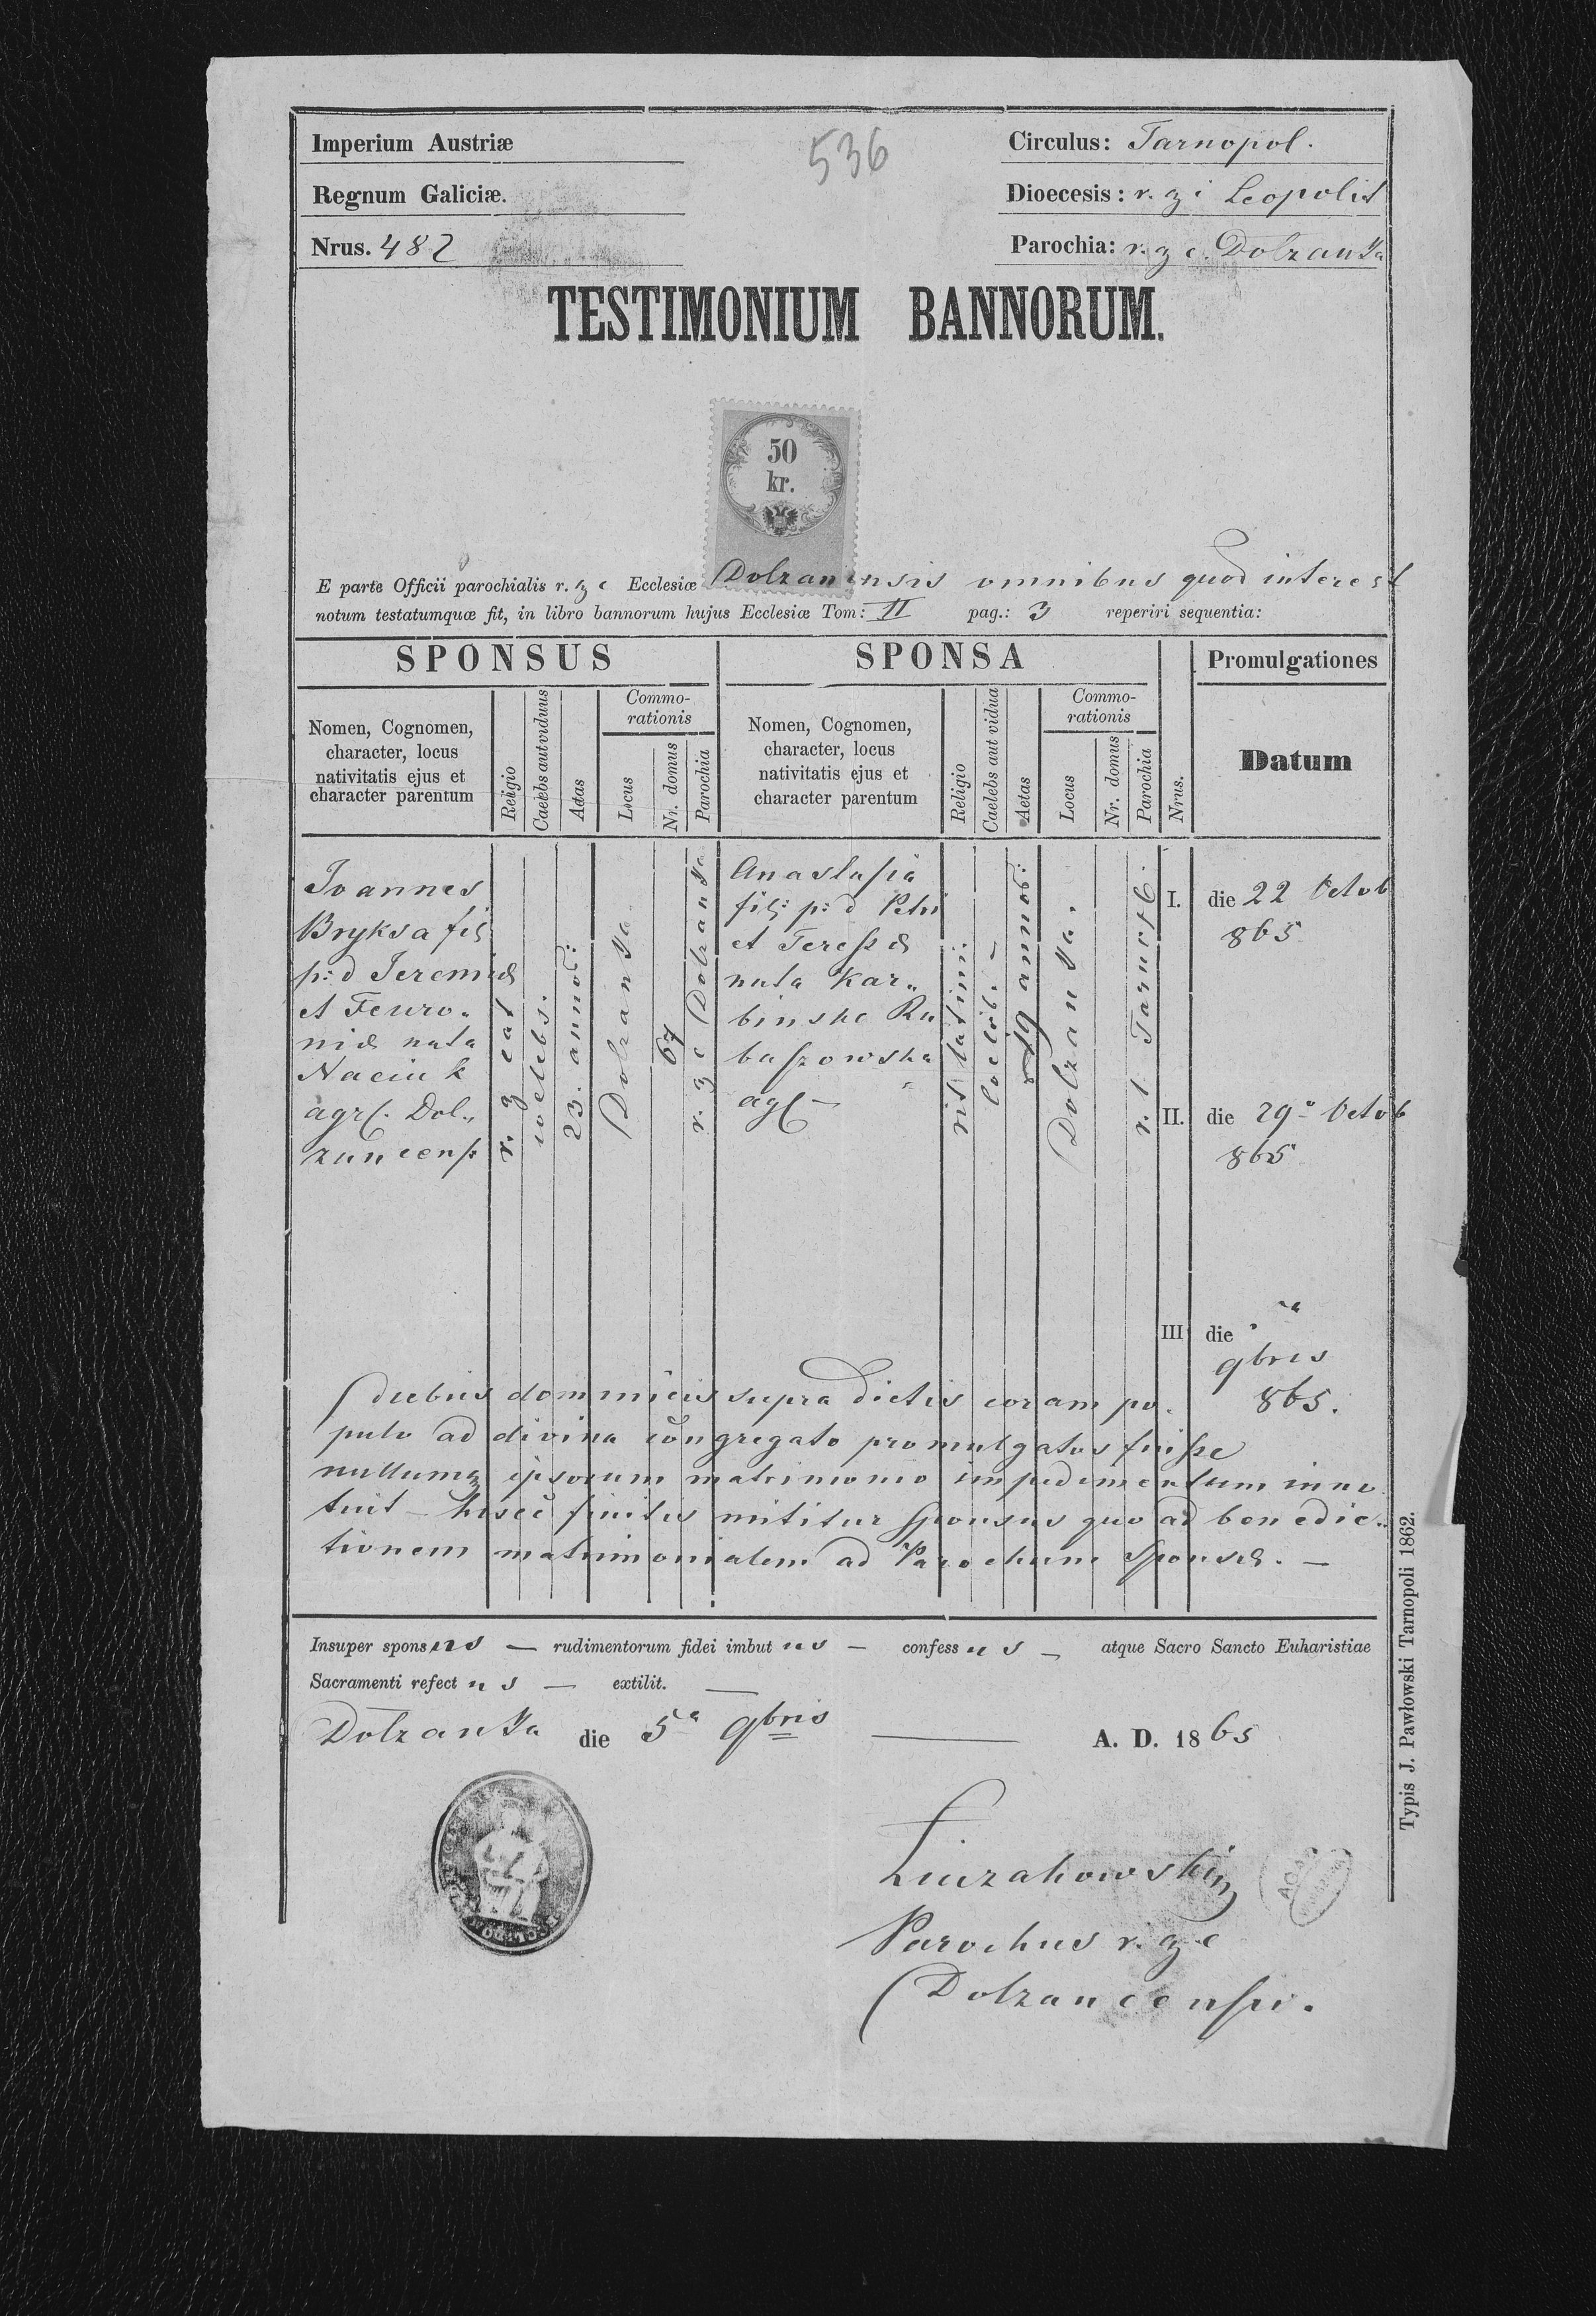 Imperium Austriæ
536
Circulus: Tarnopol.
Regnum Galiciæ.
Dioecesis: r. g. c Leopolis
Nrus. 482
Parochia: r. g c. Dolzanka
TESTIMONIUM BANNORUM.
50
kr.
E parte Officii parochialis r. g c Ecclesiæ Dolzanensis omnibus quod interest
notum testatumquæ fit, in libro bannorum hujus Ecclesiæ Tom: II pag.: 3 reperiri sequentia:
SPONSUS
SPONSA
Promulgationes
Nomen, Cognomen,
character, locus
nativitatis ejus et
character parentum
Religio
Caelebs aut viduus
Aetas
Commo-
rationis
Locus
Nr. domus
Parochia
Nomen, Cognomen,
character, locus
nativitatis ejus et
character parentum
Religio
Caelebs aut vidua
Aetas
Commo-
rationis
Locus
Nr. domus
Parochia
Nrus.
Datum
Joannes
Bryksa fil
p: d Jeremiæ
et Fewro„
niæ nata
Naciuk
agrl. Dol„
zancensp
r. g cat
coelebs.
23. annor:
Dolzanka
67
r. g c Dolzanka
Anastasia
fil: p: d Petri
et Teresiæ
nata Kar„
binske Ru
baszowska
agl –
rit latini.
coelib. –
19 annor:
Dolzanka.
r. l Tarnop.
I. die 22 Octob
865
II. die 29a Octob
865
III die
9bris
865.
diebus dominicis supra dictis coram po.
pulo ad divina congregato promulgatos fuisse
nullumq ipsorum matrimonio impedimentum inno
tuit – hisce finitis mititur sponsus quo ad benedic„
tionem matrimonialem ad Parochum sponsæ. –
Insuper sponsus — rudimentorum fidei imbutus — confessus — atque Sacro Sancto Euharistiae
Sacramenti refectus — extilit. —
Dolzanka die 5a 9bris — A. D. 1865
Parochus r. g. c
Dolzancensis.
Typis J. Pawłowski Tarnopoli 1862.